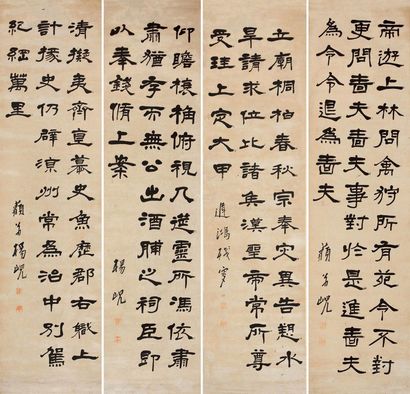 帝遊上林問禽狩所有苑令不對
更問嗇夫嗇夫事對於是進嗇夫
為令令退為嗇夫 藐翁峴
立廟桐柏春秋宗奉灾異告愬水
旱請求位比諸矦漢聖帝常所尊
受珪上定大甲 遲鴻殘叟
仰瞻榱桷俯視几筵靈所馮依肅
肅猶存而無公出酒脯之祠臣即
以奉錢脩上案 楊峴
清擬夷齊直慕史魚歷郡右職上
計掾史仍辟涼州常為治中別駕
紀綱萬里 藐翁楊峴